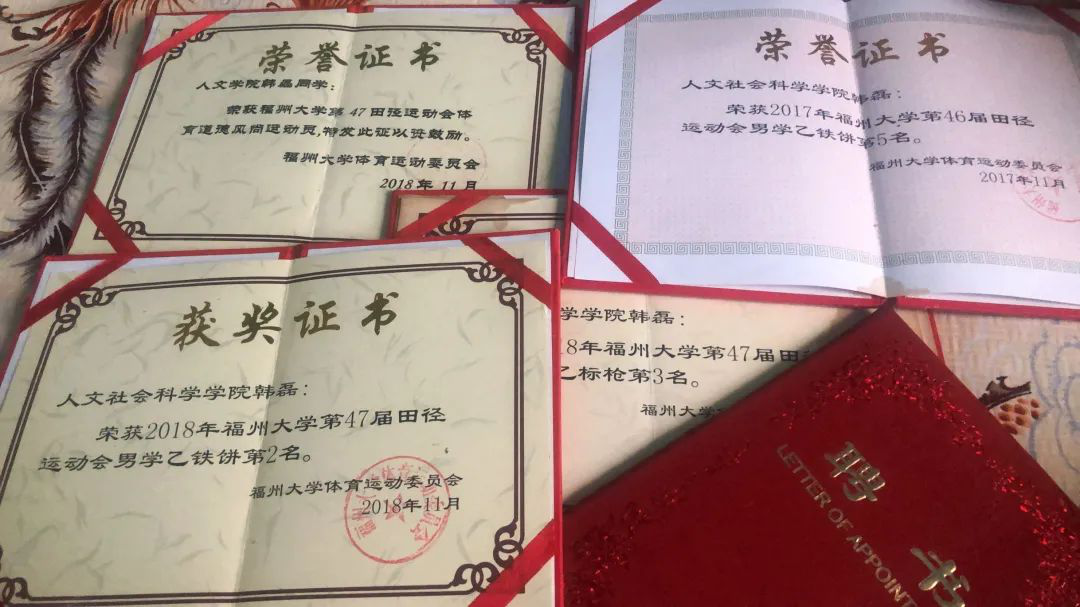 荣誉证书
人文学院韩磊同学：
荣获福州大学第 47 田径运动会体
育道德风尚运动员,特发此证以资鼓励。
福州大学体育运动委员会
2018 年 11 月
荣誉证书
人文社会科学学院韩磊：
荣获2017年福州大学第46届田径
运动会男学乙铁饼第5名。
福州大学体育运动委员会
2017年11月
获奖证书
人文社会科学学院韩磊：
荣获2018年福州大学第47届田径
运动会男学乙铁饼第2名。
福州大学体育运动委员会
2018年11月
学学院韩磊：
18年福州大学第47届田
乙标枪第3名。
福州大
聘书
LETTER OF APPOINT